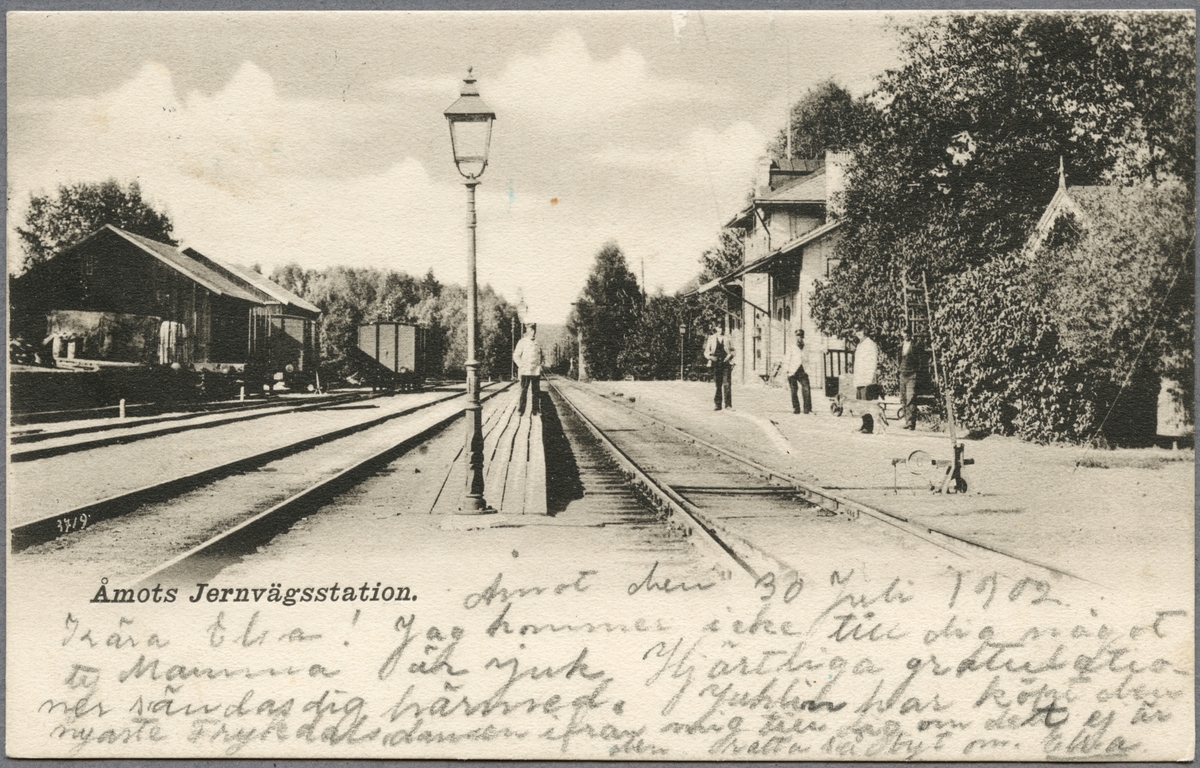 3719
Åmots Jernvägsstation.
Åmot den 30 Juli 1902.
Kära Elsa! Jag kommer icke till dig något
ty Mamma är sjuk. Hjärtliga gratulatio-
ner sändas dig härmed. har köpt den
nyaste Frykdalsdansen ifrån mig till dig om det ej är
den rätta så byt om. Elva